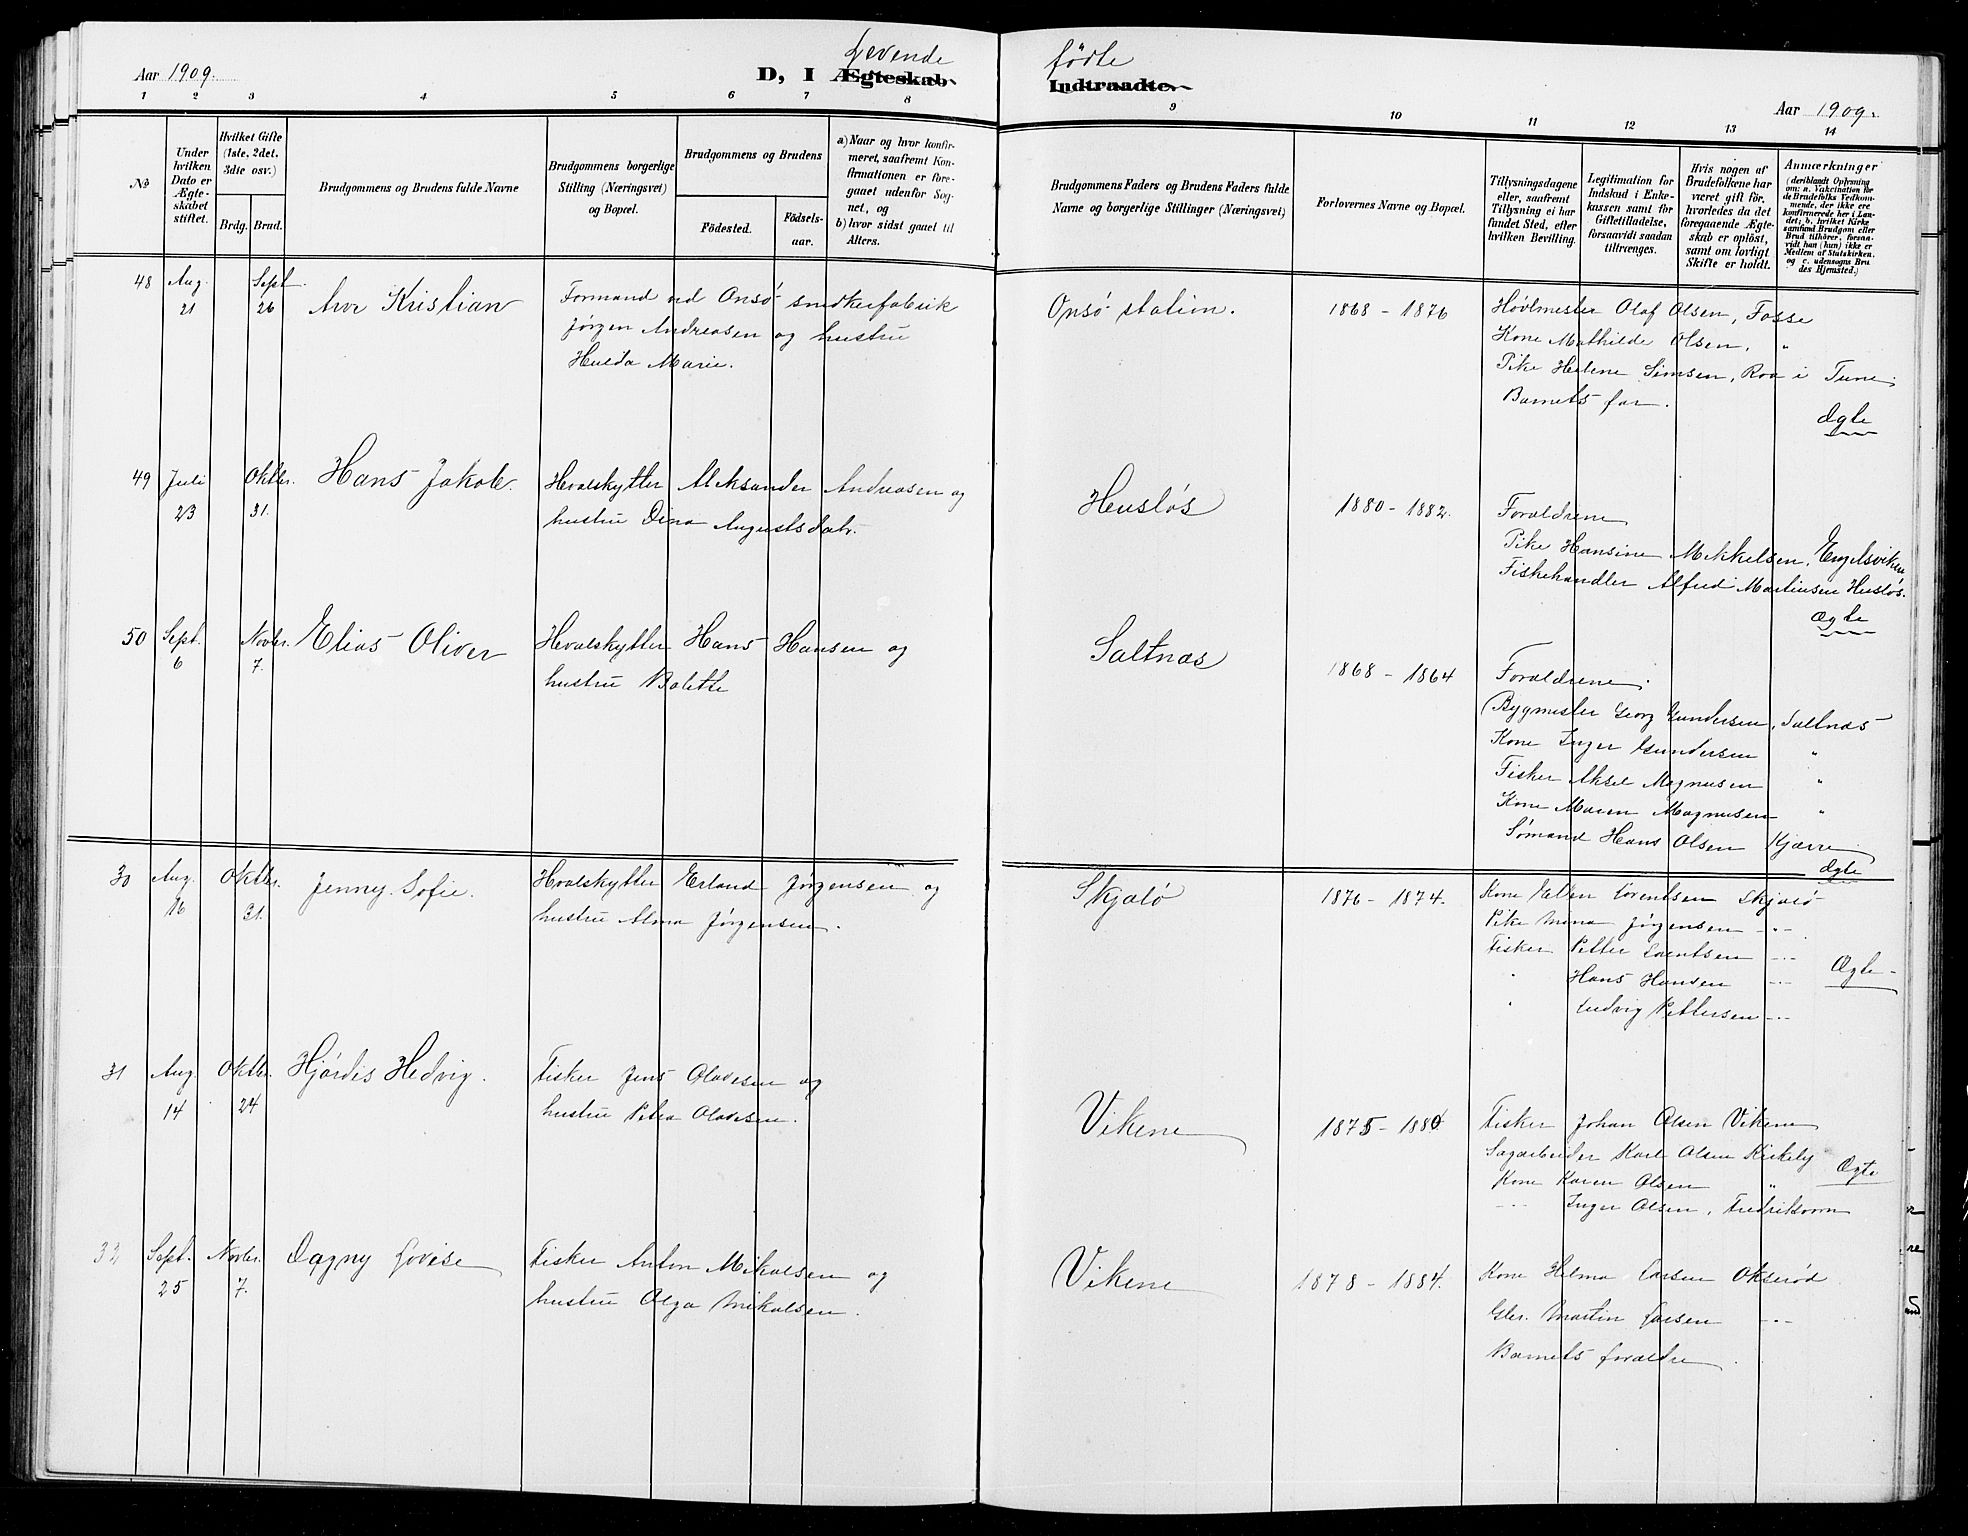 Levende fødte
Aar 1909. D, I Ægteskab Indtraadte Aar 1909.
1 2 3 4 5 6 7 8 9 10 11 12 13 14
No
Under hvilken Dato er Ægteskabet stiftet.
Hvilket Gifte (1ste, 2det, 3die osv.)
Brdg. Brud.
Brudgommens og Brudens fulde Navne
Brudgommens borgerlige Stilling (Næringsvei) og Bopæl.
Brudgommens og Brudens
Födested. Födselsaar.
a) Naar og hvor konfirmeret, saafremt Konfirmationen er foregaaet udenfor Sognet, og
b) hvor sidst gaaet til Alters.
Brudgommens Faders og Brudens Faders fulde Navne og borgerlige Stillinger (Næringsvei)
Forlovernes Navne og Bopæl.
Tillysningsdagene eller, saafremt Tillysning ei har fundet Sted, efter hvilken Bevilling.
Legitimation for Indskud i Enkekassen samt for Giftetilladelse, forsaavidt saadan tiltrænges.
Hvis nogen af Brudefolkene har været gift för, hvorledes da det foregaaende Ægteskab er oplöst, samt om lovligt Skifte er holdt.
Anmærkninger
(deriblandt Oplysning om: a. Vakcination for de Brudefolks Vedkommende, der ikke ere konfirmerede her i Landet; b. hvilket Kirkesamfund Brudgom eller Brud tilhörer, forsaavidt han (hun) ikke er Medlem af Statskirken, og c. udensogns Brudes Hjemsted.)
48 Aug. 21 Sept. 26 Arve Kristian
Formand ved Onsø snedkerfabrik
Jørgen Andreasen og hustru
Hulda Marie.
Onsø station. 1868 - 1876
Høvlmester Olaf Olsen, Fosse
Kone Mathilde Olsen, "
Pike Helene Simsen, Roa i Tune
Barnets far.
Ægte
49 Juli 23 Oktbr. 31. Hans Jakob.
Hvalskytter Aleksander Andreasen og
hustru Dina Augustsdatr.
Husløs 1880 - 1882.
Forældrene
Pike Hansine Mikkelsen, Engelsviken
Fiskehandler Alfred Martinsen Husløs.
Ægte
50 Sept. 6 Novbr. 7. Elias Oliver
Hvalskytter Hans Hansen og
hustru Bolette
Saltnæs 1868 - 1864
Forældrene.
Bygmester Georg Gundersen, Saltnæs
Kone Inger Gundersen "
Fisker Aksel Magnusen "
Kone Maren Magnusen "
Sømand Hans Olsen Kjærre
Ægte
30 Aug. 16 Oktbr. 31. Jenny Sofie.
Hvalskytter Erland Jørgensen og
hustru Alma Jørgensen.
Skjælø 1876 - 1874.
Kone Ellen Lorentsen Skjælø
Pike Mina Jørgensen -"-
Fisker Petter Lorentsen -"-
" Hans Hansen -"-
" Ludvig Pettersen -"-
Ægte
31 Aug. 14 Oktbr. 24 Hjørdis Hedvig.
Fisker Jens Olavesen og
hustru Petra Olavesen.
Vikene 1875 - 1880
Fisker Johan Olsen Vikene
Sagarbeider Karl Olsen Kirkely
Kone Karen Olsen "
-"- Inger Olsen, Fredriksværn
Ægte
32 Sept. 25 Novbr. 7. Dagny Lovise
Fisker Anton Mikalsen og
hustru Olga Mikalsen.
Vikene 1878 - 1884.
Kone Helma Larsen Okserød
Gbr. Martin Larsen -"-
Barnets forældre.